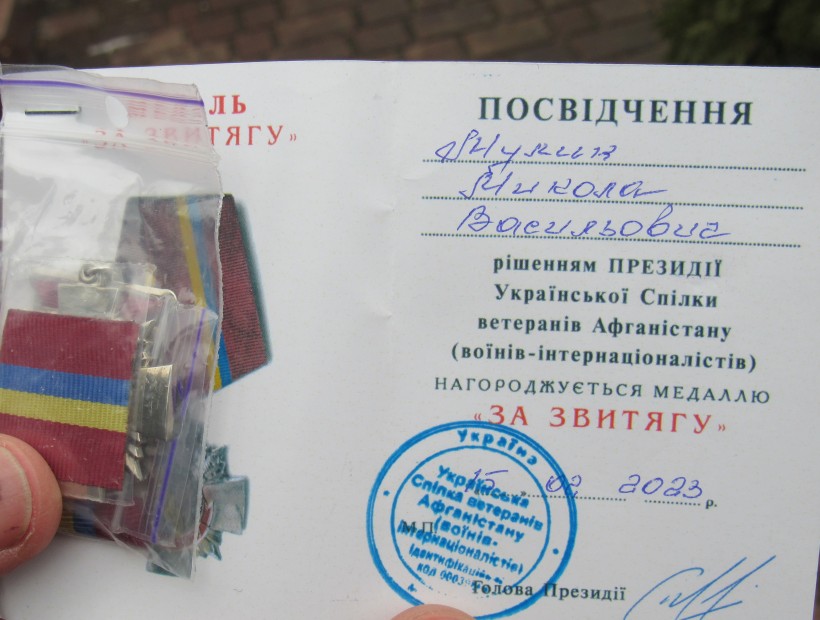 ЛЬ
«ЗА ЗВИТЯГУ»
ПОСВІДЧЕННЯ
Микола
Васильович
рішенням ПРЕЗИДІЇ
Української Спілки
ветеранів Афганістану
(воїнів-інтернаціоналістів)
НАГОРОДЖУЄТЬСЯ МЕДАЛЛЮ
«ЗА ЗВИТЯГУ»
15 02 2023 р.
Україна
Українська
Спілка ветеранів
Афганістану
(воїнів-
інтернаціоналістів)
М.П.
Голова Президії